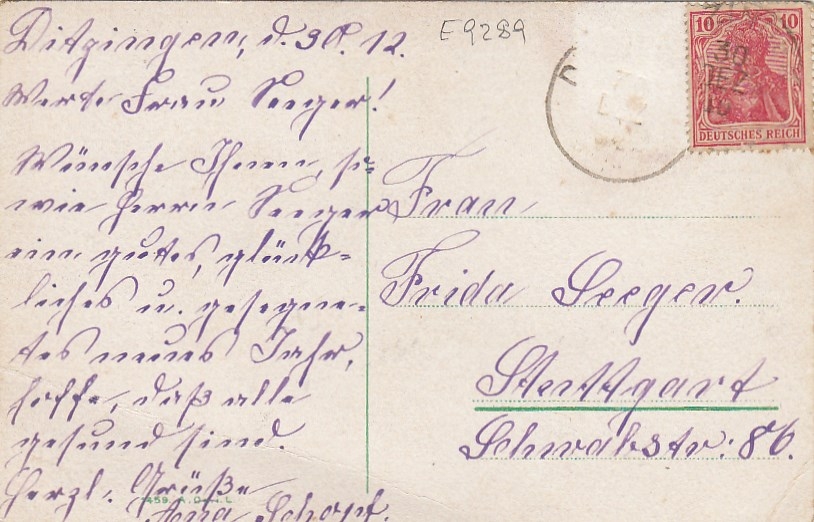 Ditzingen, d. 30. 12.
Werte Frau Seeger!
Wünsche Ihnen, so-
wie Herrn Seeger
ein gutes, glück-
liches u. gesegne-
tes neues Jahr,
hoffe, daß alle
gesund sind.
Herzl. Grüße
Schopf.
E9289
10 10
30
DEZ
DEUTSCHES REICH
Frau
Frida Seeger.
Stuttgart
Schwabstr: 86.